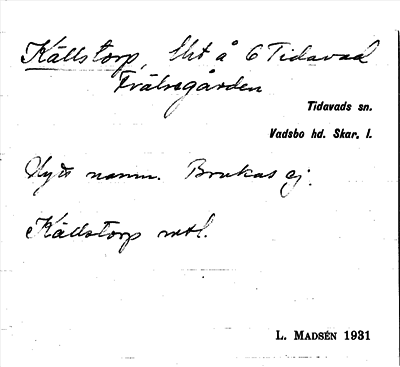 Källstorp, Lht å 6 Tidavad
Frälsegården
Tidavads sn.
Vadsbo hd. Skar. l.
Nytt namn. Brukas ej.
Källstorp mtl.
L. MADSÉN 1931